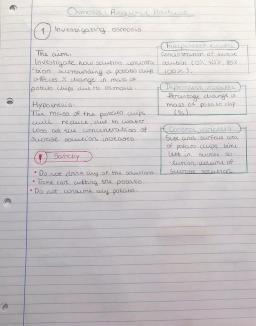 Osmosis: Required Practical
1 Investigating osmosis
The aim:
Investigate how solution concentra-
tion surrounding a potato chip
affects % change in mass of
potato chips due to osmosis.
Hypothesis:
The mass of the potato chips
will reduce due to water
loss as the concentration of
sucrose solution increases.
! Safety
• Do not drink any of the solution.
• Take care cutting the potato.
• Do not consume any potato.
Independent variable
Concentration of sucrose
solution
100%).
Dependent variable
Percentage change in
mass of potato chip
(%).
Control variables
Size and surface area
of potato chips, time
left in sucrose so-
lution, volume of
sucrose solution.